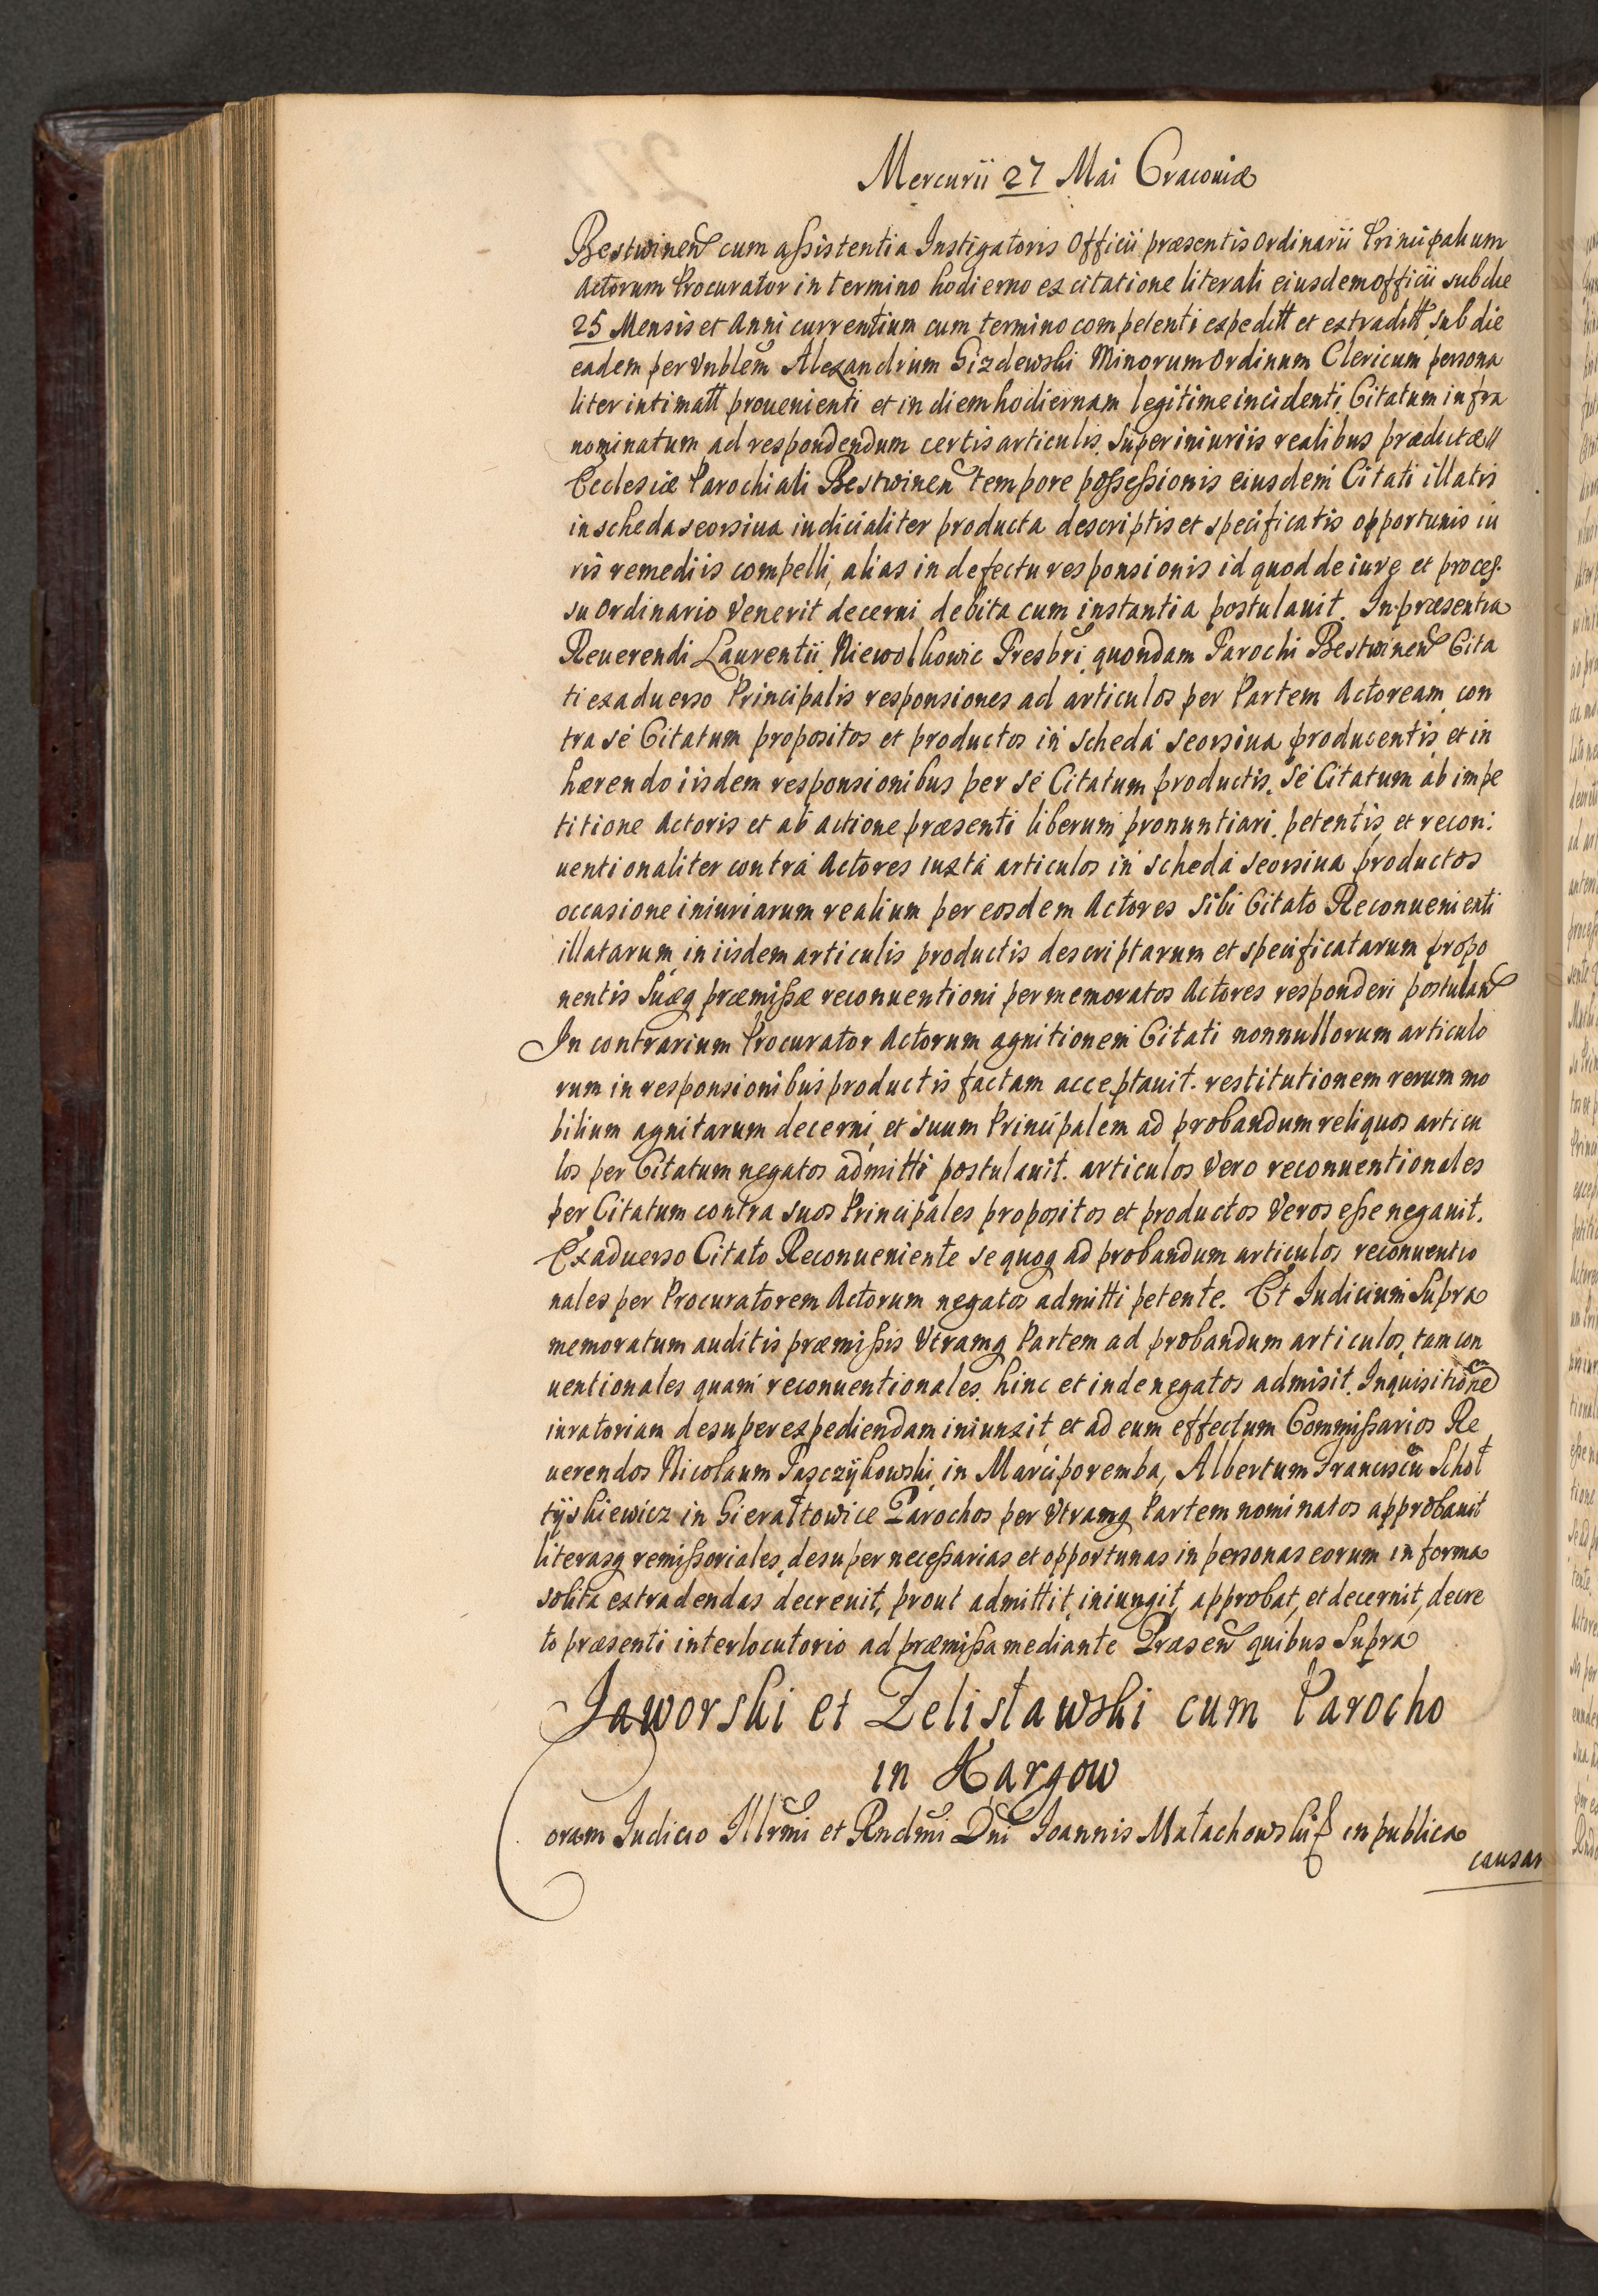 Mercurii 27 Mai Cracoviæ
Bestwinen cum aſsistentia Instigatoris Officii præsentis Ordinarii Principalium
Actorum Procurator in termino hodierno ex citatione literali eiusdem officii sub die
25 Mensis et Anni currentium cum termino competenti expeditt et extraditt sub die
eadem per Vnblem Alexandrum Gizdewski Minorum Ordinum Clericum persona
liter intimatt prouenienti et in diem hodiernam legitime incidenti Citatum infra
nominatum ad respondendum certis articulis super iniuriis realibus prædictæ
Ecclesiæ Parochiali Bestwinen tempore poſseſsionis eiusdem Citati illatis
in scheda seorsiua iudicialiter producta descriptis et specificatis opportunis iu
ris remediis compelli, alias in defectu responsionis id quod de iure et proceſ-
su Ordinario Venerit decerni debita cum instantia postulauit. In præsentia
Reuerendi Laurentii Niewolkowic Presbri quondam Parochi Bestwinen Cita
ti ex aduerso Principalis responsiones ad articulos per Partem Actoream con
tra sé Citatum propositos et productos in schedá seorsiua producentis et in
hærendo iisdem responsionibus per sé Citatum productis, sé Citatum ab impe
titione Actoris et ab actione præsenti liberum pronuntiari petentis et recon:
uentionaliter contrá Actores iuxtá articulos in schedá seorsiua productos
occasione iniuriarum realium per eosdem Actores sibi Citato Reconuenienti
illatarum in iisdem articulis productis descriptarum et specificatarum propo
nentis Suæq præmiſsæ reconuentioni per memoratos Actores responderi postulan
In contrarium Procurator Actorum agnitionem Citati nonnullorum articulo
rum in responsionibus productis factam acceptauit. restitutionem rerum mo
bilium agnitarum decerni, et suum Principalem ad probandum reliquos articu
los per Citatum negatos admitti postulauit. articulos Vero reconuentionales
per Citatum contra suos Principales propositos et productos Veros eſse negauit.
Ex aduerso Citato Reconueniente se quoq ad probandum articulos reconuentio
nales per Procuratorem Actorum negatos admitti petente. Et Iudicium Supra
memoratum auditis præmiſsis Vtramq Partem ad probandum articulos, tam con
uentionales quam reconuentionales hinc et inde negatos admisit. Inquisitionē
iuratoriam desuper expediendam iniunxit, et ad eum effectum Commiſsarios Re
uerendos Nicolaum Pasczÿkowski in Marciporemba, Albertum Franciscū Schoł
tÿskiewicz in Gierałtowice Parochos per Vtramq Partem nominatos approbauit
literasq remiſsoriales desuper neceſsarias et opportunas in personas eorum in forma
solita extradendas decreuit, prout admittit, iniungit, approbat, et decernit, decre
to præsenti interlocutorio ad præmiſsa mediante Præsen quibus Supra
Jaworski et Zelisławski cum Parocho
in Kargow
Coram Iudicio Illrmi et Rndmi Dni Ioannis Małachowski in publica
causar